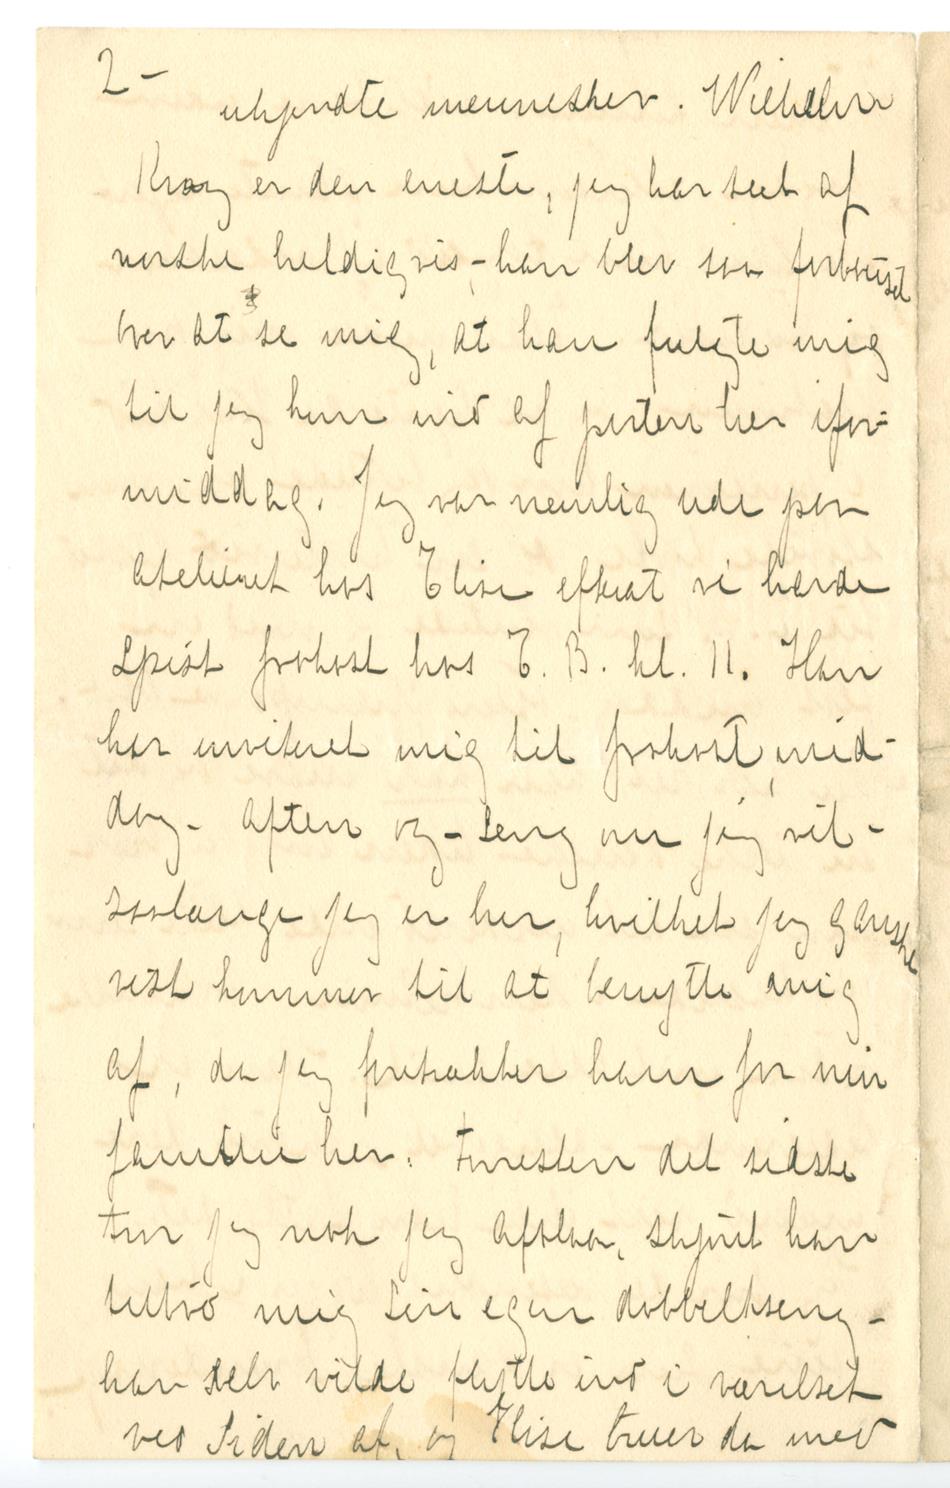 2-
ukjendte mennesker. Wilhelm
Krag er den eneste, jeg har seet af
norske heldigvis, - han blev saa forbauset
over at se mig, at han fulgte mig
til jeg kom ind af porten her ifor-
middag. Jeg var nemlig ude paa
atelieret hos Elise efterat vi havde
spist frokost hos E. B. kl. 11. Han
har inviteret mig til frokost, mid-
dag - aften og - seng om jeg vil -
saalænge jeg er her, hvilket jeg ganske
vist kommer til at benytte mig
af, da jeg foretrækker ham for min
familie her. Forresten det sidste
tror jeg nok jeg afslaar, skjønt han
tilbød mig sin egen dobbeltseng -
han selv vilde flytte ind i værelset
ved siden af, og Elise truer da med